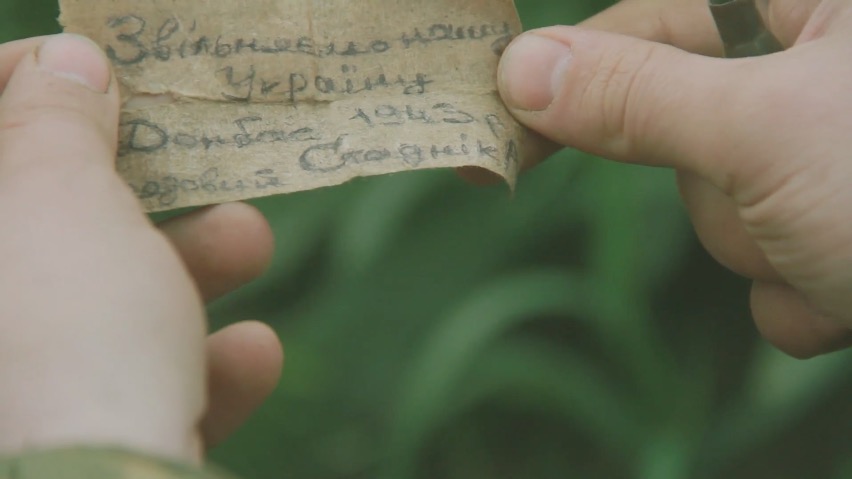 Звільняємо нашу
Україну
Донбас 1943 р
Сладнік А
ядовий